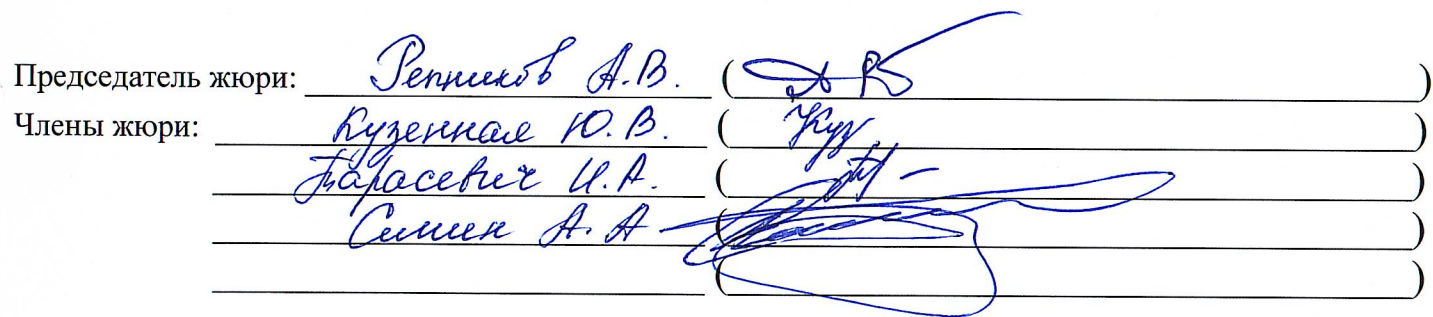 Председатель жюри: Репников А.В. ( )
Члены жюри: Кузенная Ю.В. ( Куз )
Тарасевич И.А. ( )
Симин А.А ( )
( )